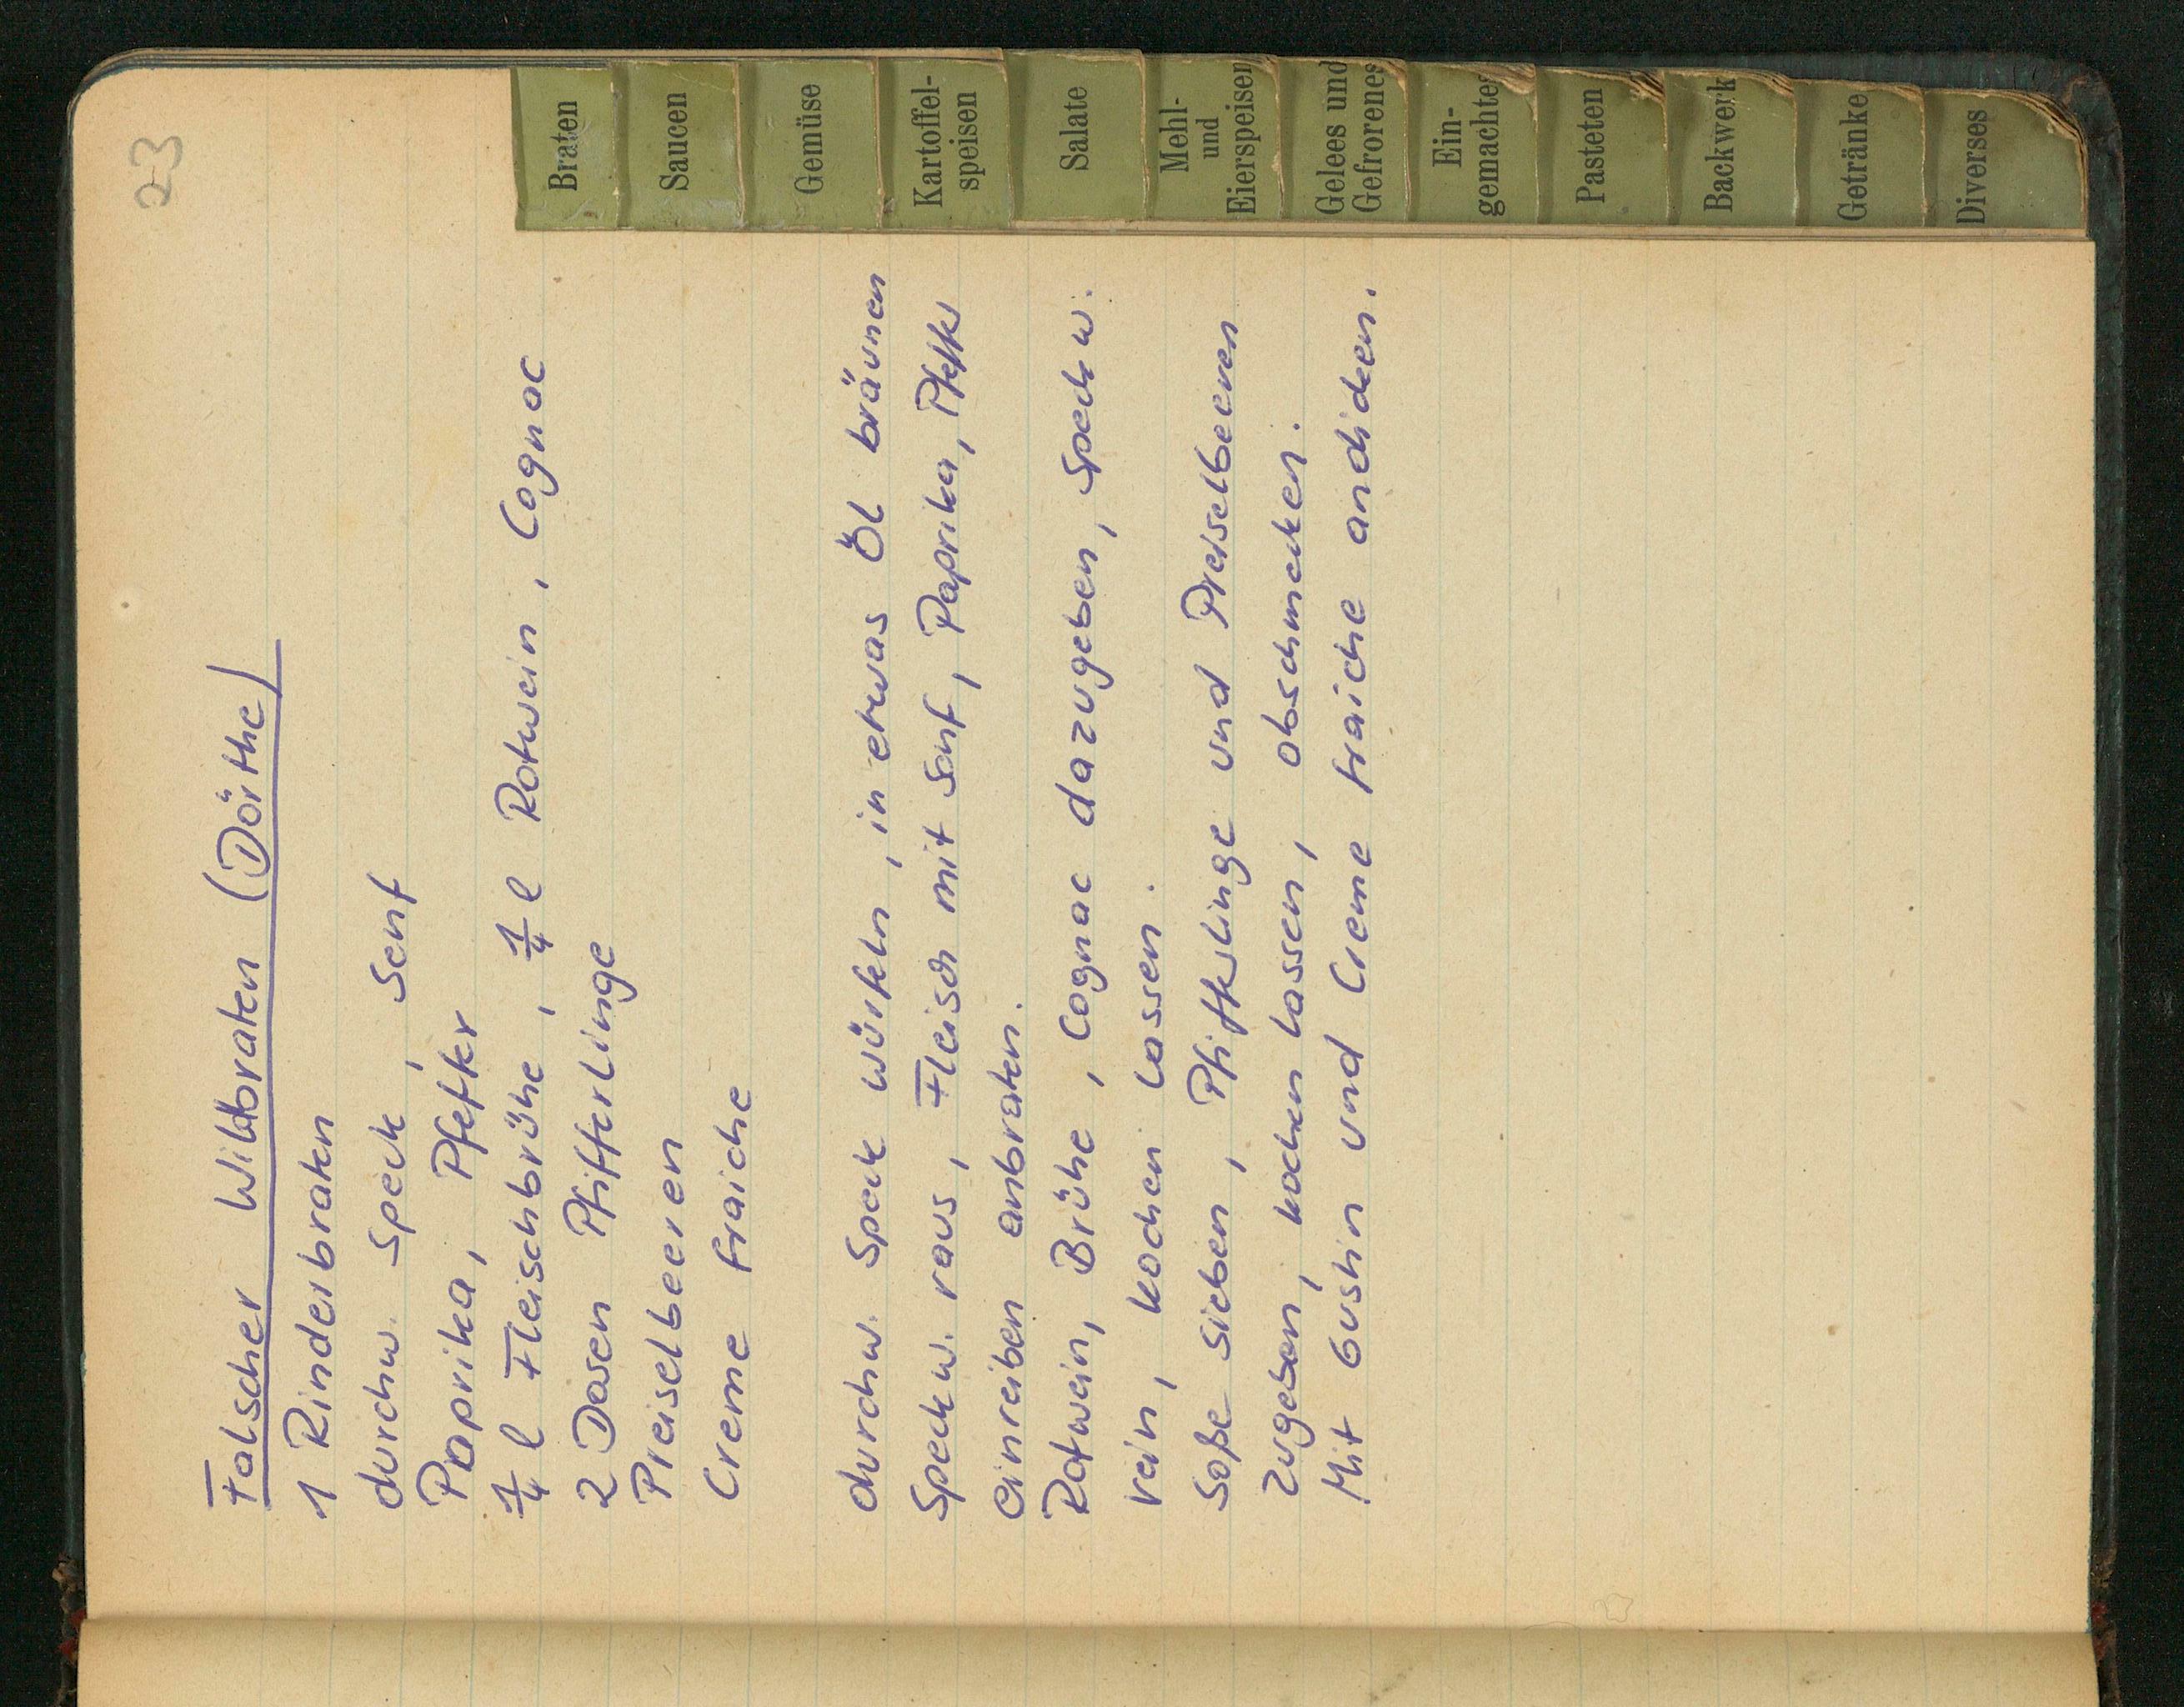 23
Falscher Wildbraten (Dörthe)
1 Rinderbraten
durchw. Speck, Senf
Paprika, Pfeffer
1/4 l Fleischbrühe, 1/4 l Rotwein, Cognac
2 Dosen Pfifferlinge
Preiselbeeren
Creme fraiche
durchw. Speck würfeln, in etwas Öl bräunen
Speckw. raus, Fleisch mit Senf, Paprika, Pfeffer
einreiben anbraten.
Rotwein, Brühe, Cognac dazugeben, Speckw.
rein, kochen lassen.
Soße sieben, Pfifferlinge und Preiselbeeren
zugeben, kochen lassen, abschmecken.
Mit Gustin und Creme fraiche andicken.
Braten
Saucen
Gemüse
Kartoffel-
speisen
Salate
Mehl-
und
Eierspeisen
Gelees und
Gefrorenes
Ein-
gemachtes
Pasteten
Backwerk
Getränke
Diverses